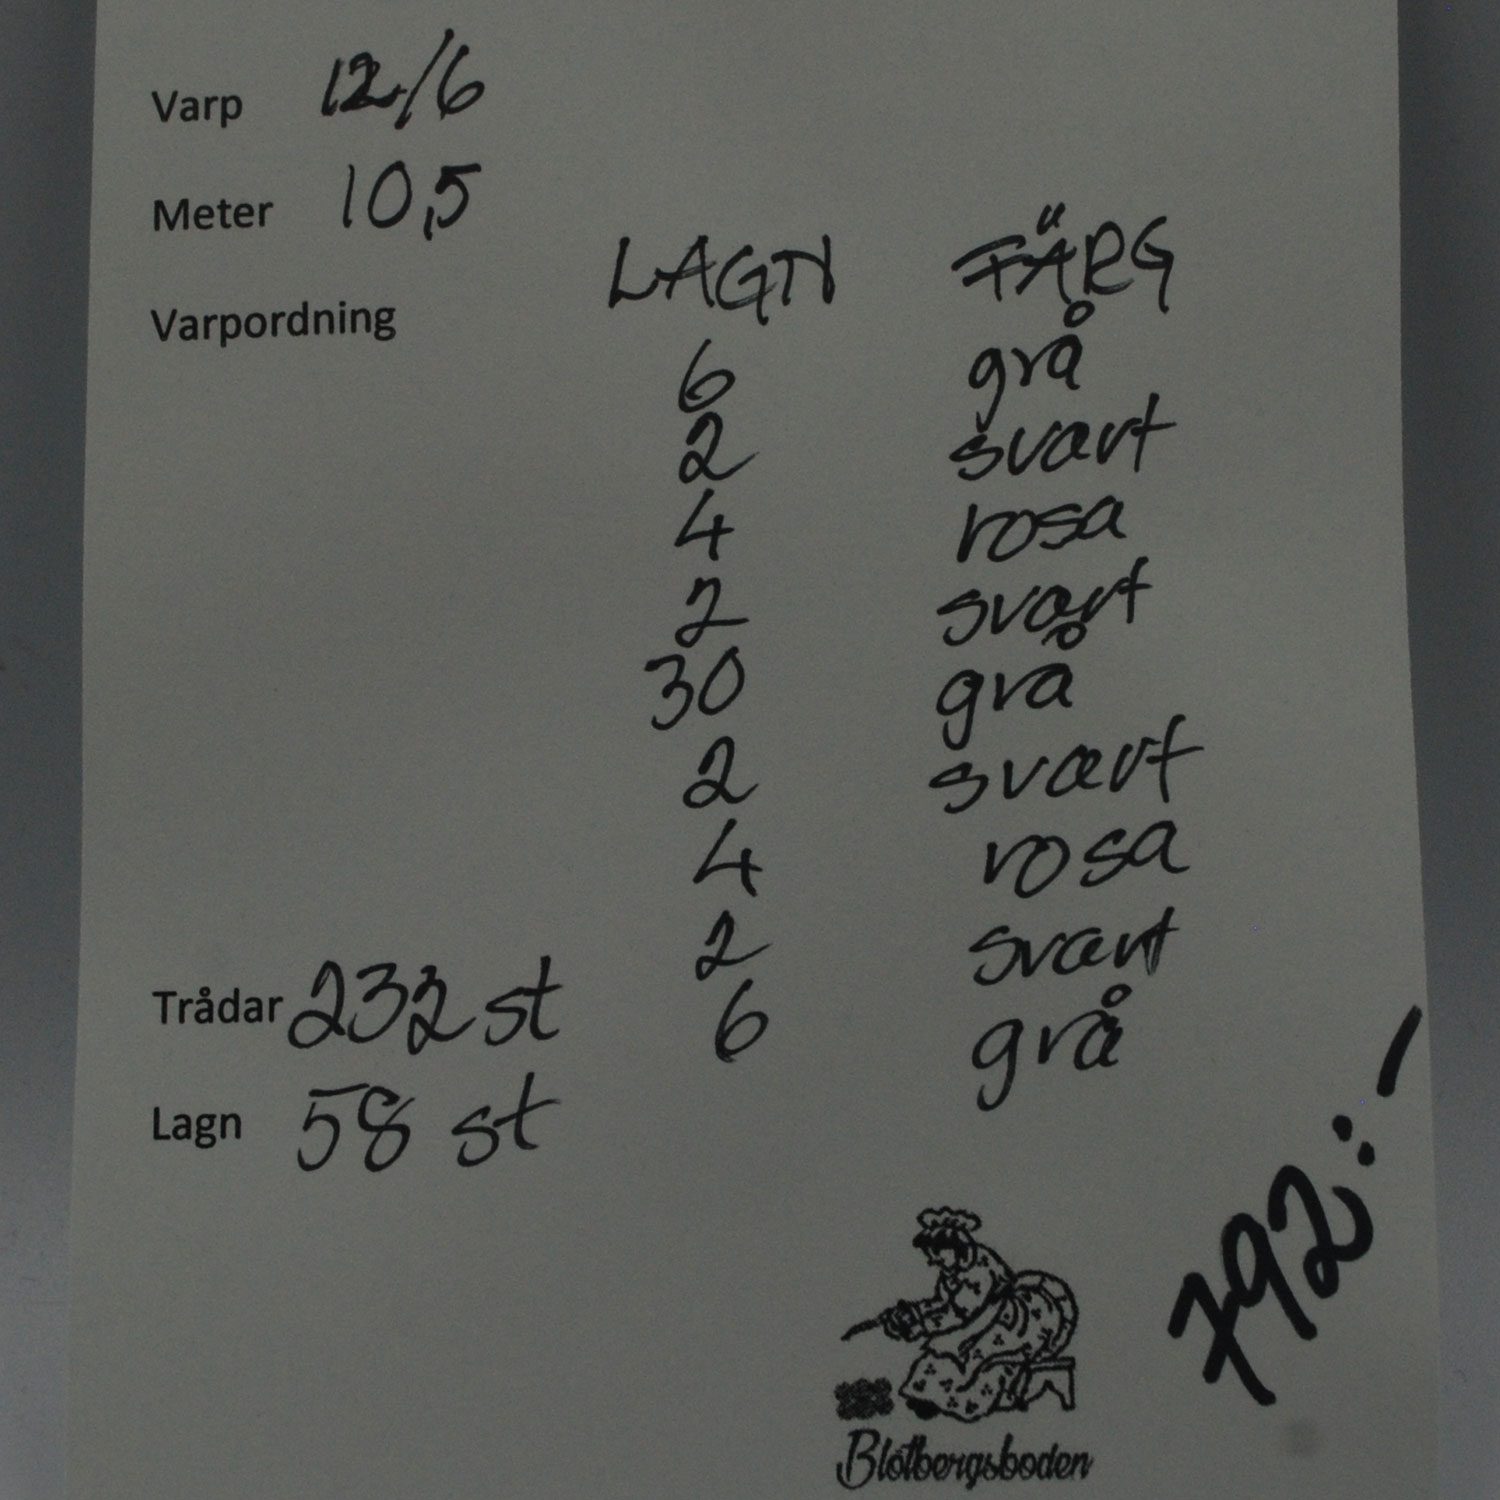 Varp 12/6
Meter 10,5
Varpordning LAGN FÄRG
6 grå
2 svart
4 rosa
2 svart
30 grå
2 svart
4 rosa
2 svart
6 grå
Trådar 232 st
Lagn 58 st
792:-
Blötbergsboden